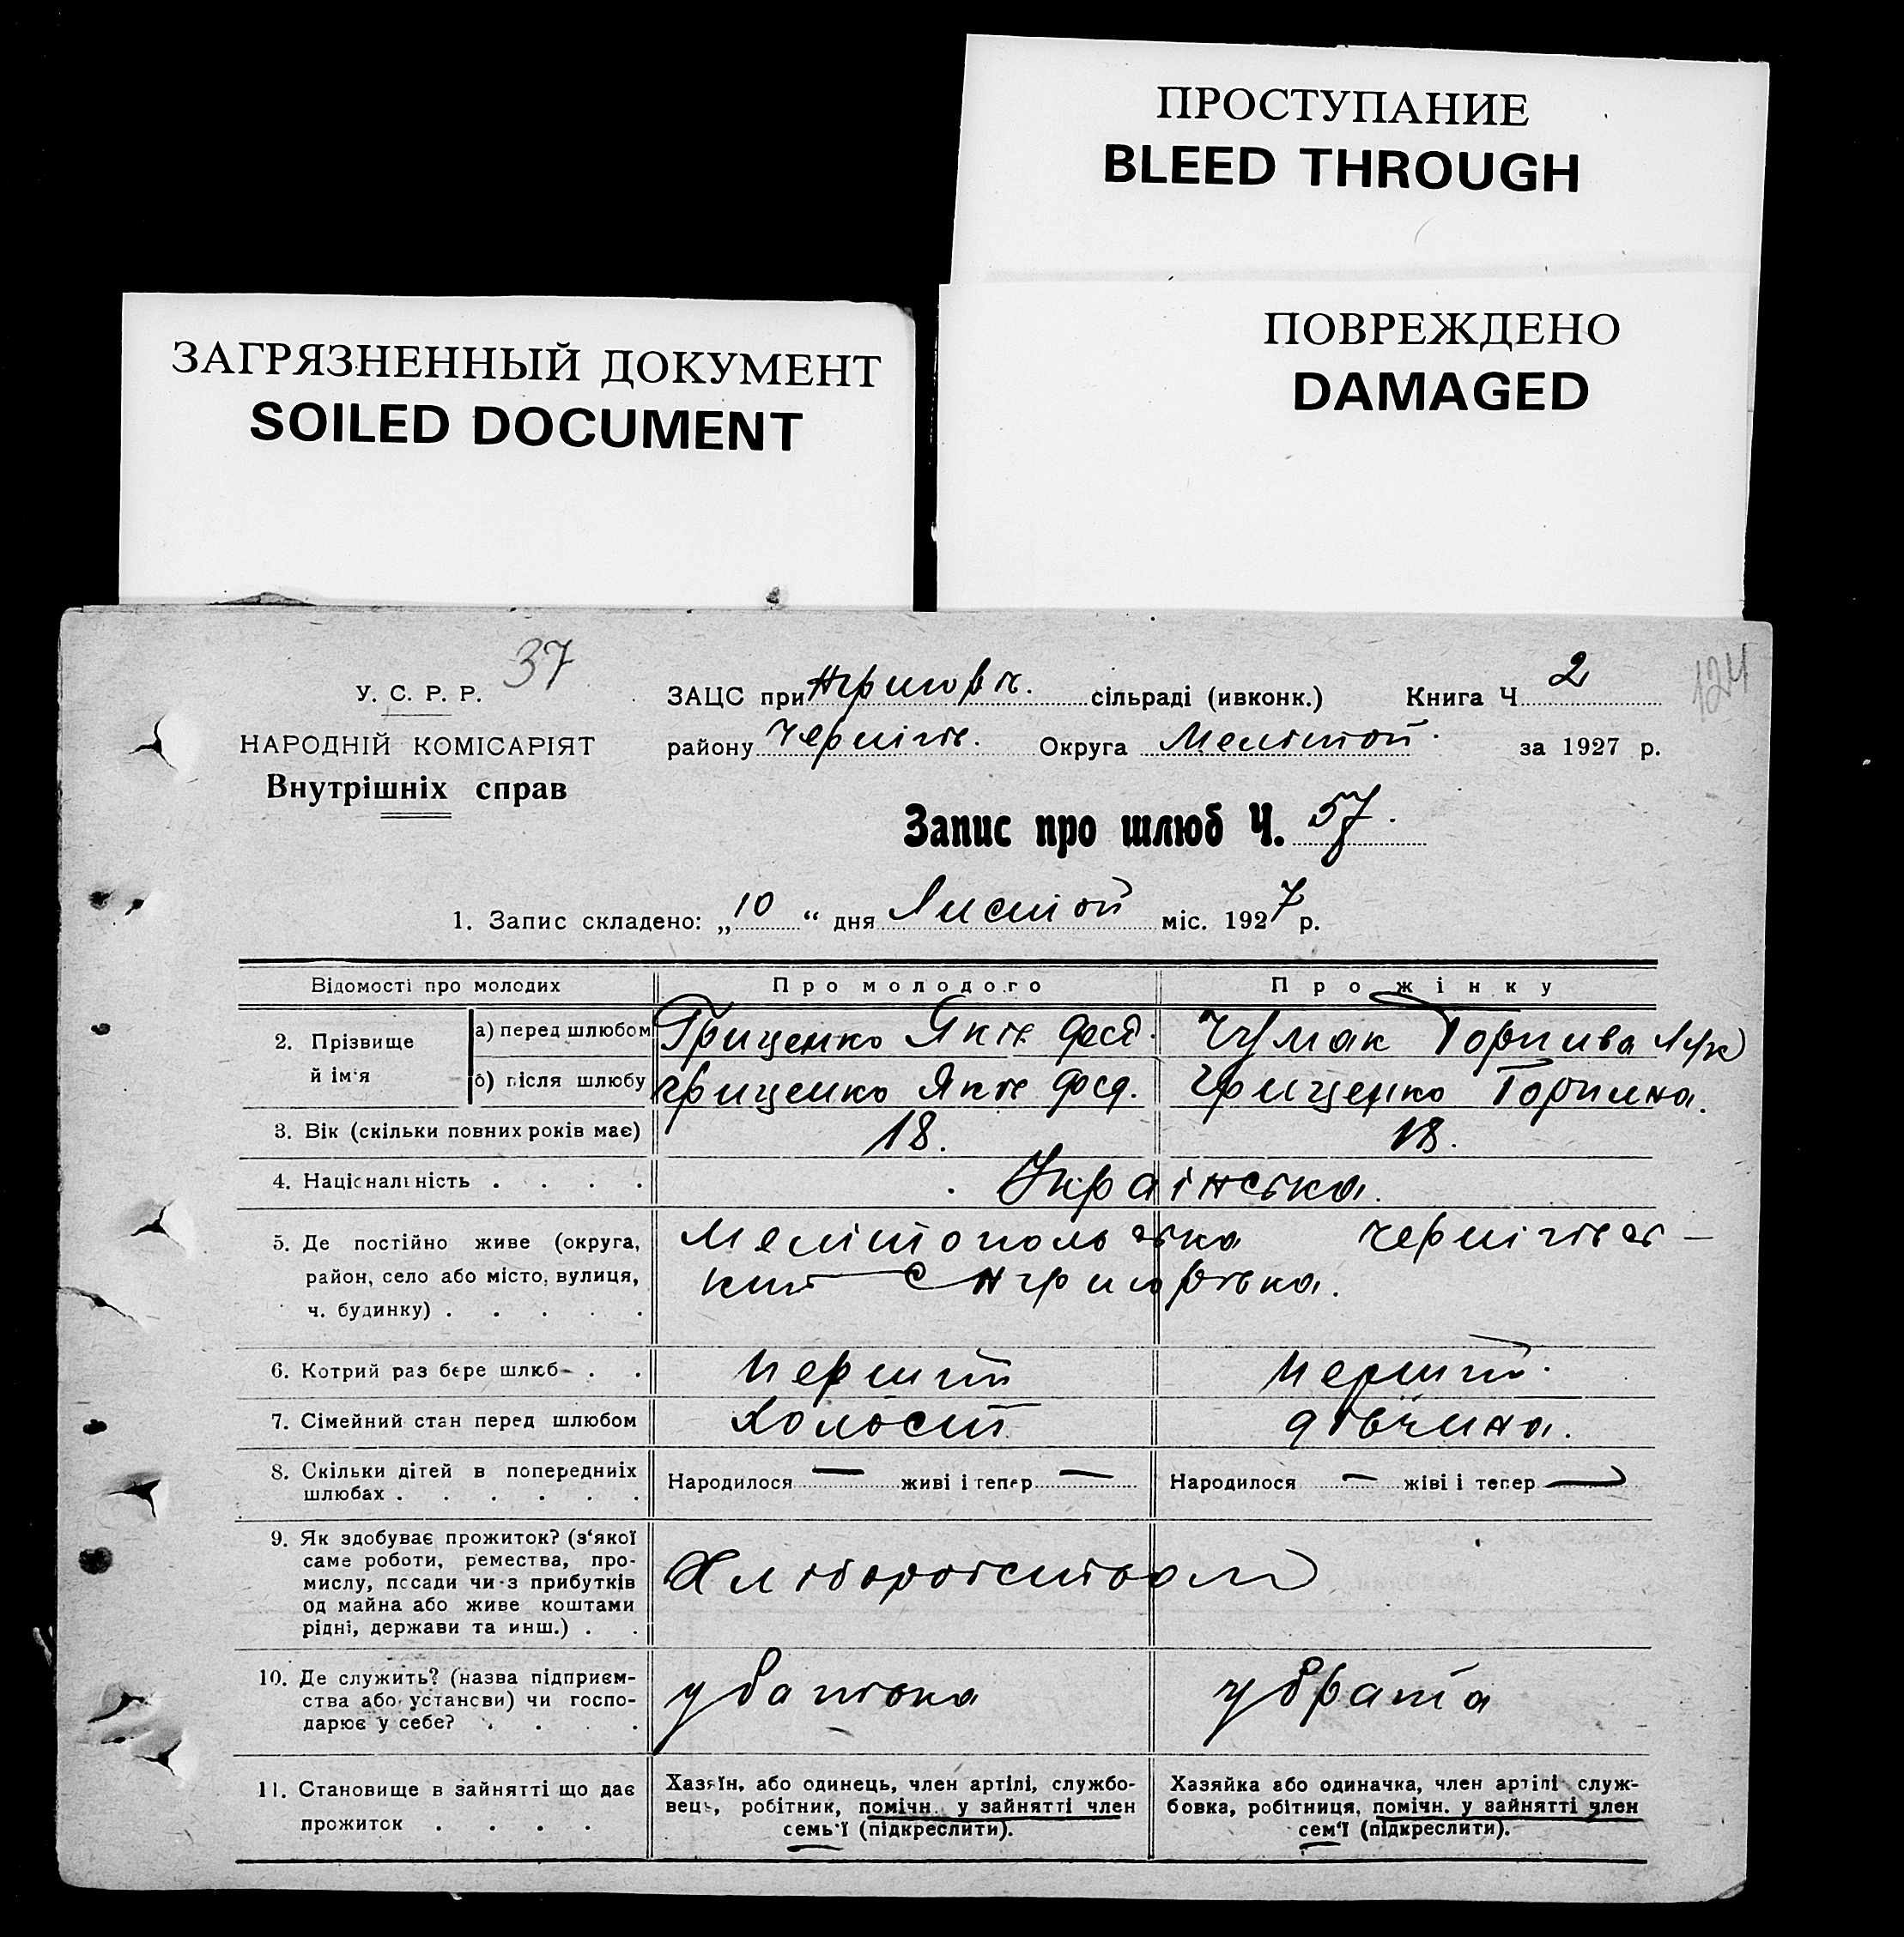 ПРОСТУПАНИЕ
BLEED THROUGH
ПОВРЕЖДЕНО
DAMAGED
ЗАГРЯЗНЕННЫЙ ДОКУМЕНТ
SOILED DOCUMENT
37
124
У. С. Р. Р.
НАРОДНІЙ КОМІСАРІЯТ
Внутрішніх справ
ЗАЦС при сільраді (ивконк.) Книга Ч. 2
району Чернігів. Округа Меліттой. за 1927 р.
Запис про шлюб Ч. 57.
1. Запис складено: „10“ дня Листой міс. 1927 р.
Відомості про молодих Про молодого Про жінку
2. Прізвище й ім'я
а) перед шлюбом Гриценко Яків Фед. Чумак Горпина Лук
б) після шлюбу Гриценко Яків Фед. Гриценко Горпина.
3. Вік (скільки повних років має) 18. 18.
4. Національність . . . . Українська.
5. Де постійно живе (округа, Мелітопольська Чернігівсь-
район, село або місто, вулиця, кий с
ч. будинку) . . . . .
6. Котрий раз бере шлюб . . Перший Перший.
7. Сімейний стан перед шлюбом Холостий дівчина.
8. Скільки дітей в попередниіх
шлюбах . . . . . .
Народилося — живі і тепер — Народилося — жіві і тепер —
9. Як здобуває прожиток? (з'якої
саме роботи, ремества, про-
мислу, посади чи з прибутків
од майна або живе коштами
рідні, держави та инш.) . .
Хліборобством
10. Де служить? (назва підприєм-
ства або установи) чи госпо-
дарює у себе? . . . .
у батька у брата
11. Становище в зайнятті що дає
прожиток . . . .
Хазяїн, або одинець, член артілі, службо-
вець, робітник, помічн. у зайнятті член
семь'ї (підкреслити).
Хазяйка або одиначка, член артілі служ-
бовка, робітниця, помічн. у зайнятті член
сем'ї (підкреслити).